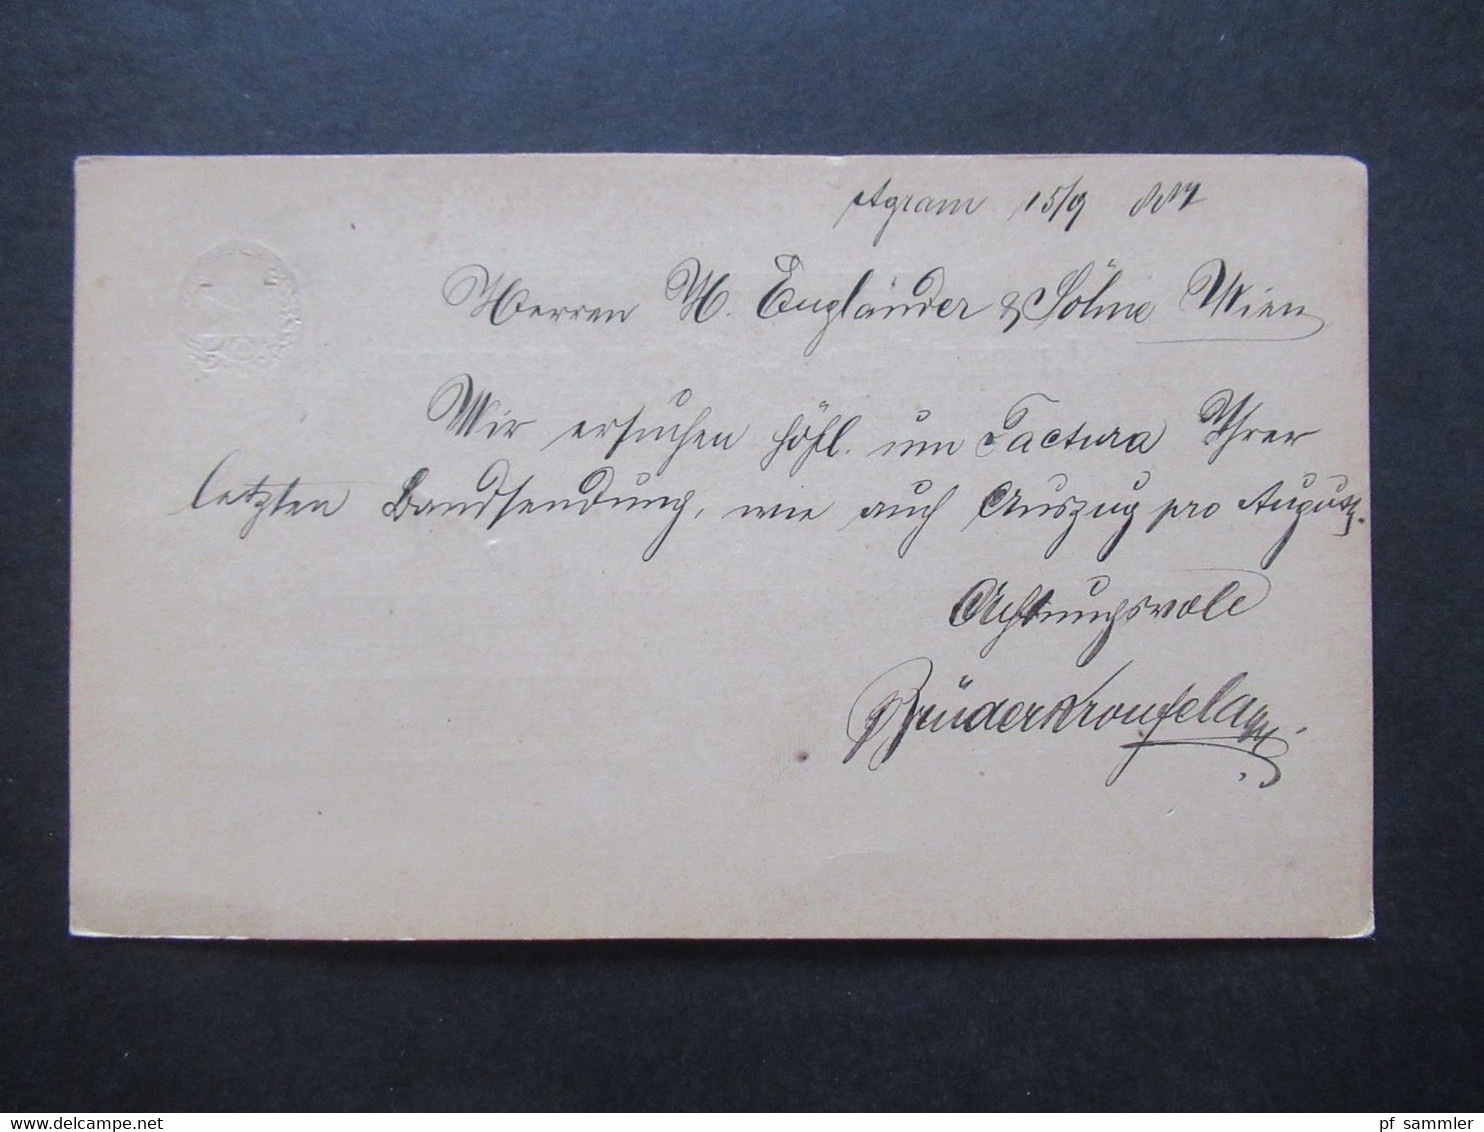 Agram 15/9 887
Herren M. Engländer & Söhne Wien
Wir ersuchen höfl. um Factura Ihrer
letzten Bandsendung, wie auch Auszug pro August.
Achtungsvoll
Brüder Kronfeld
www.delcampe.net
pf_sammler